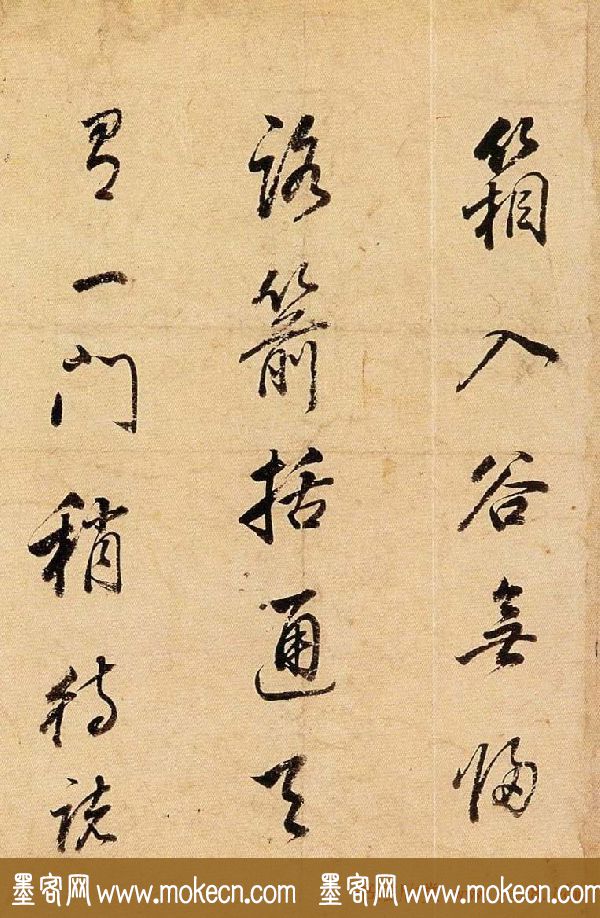 箱入谷無歸
路箭括通天
有一門稍待
墨客网 www.mokecn.com 墨客网 www.mokecn.com